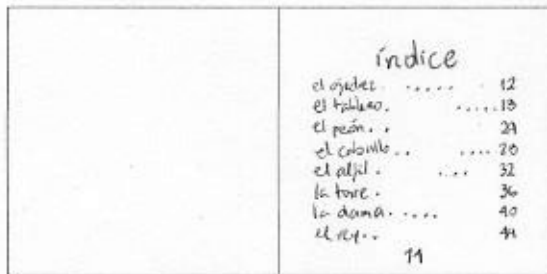 índice
el ajedrez. ..... 12
el tablero. .....18
el peón.. 24
el caballo.. ....28
el alfil. ... 32
la torre. 36
la dama..... 40
el rey.. 44
11